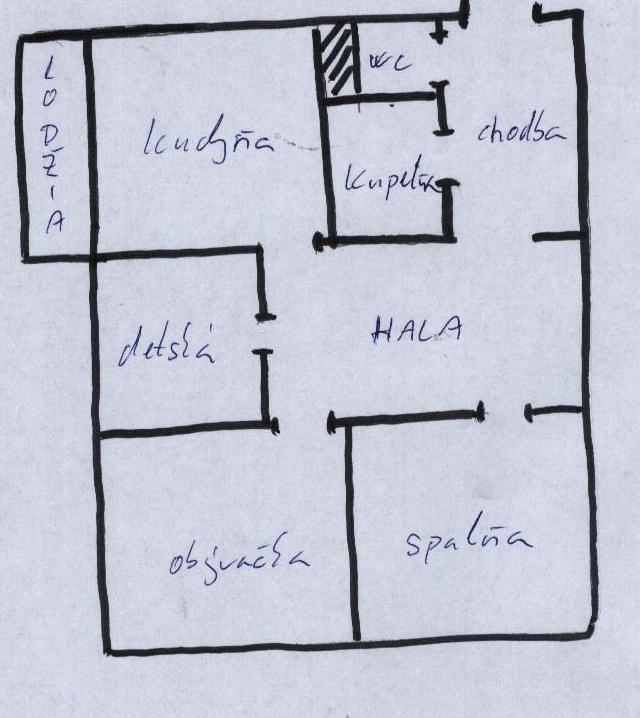 LODŽIA
WC
kuchyňa
chodba
kúpeľňa
detská
HALA
obývačka
spalňa